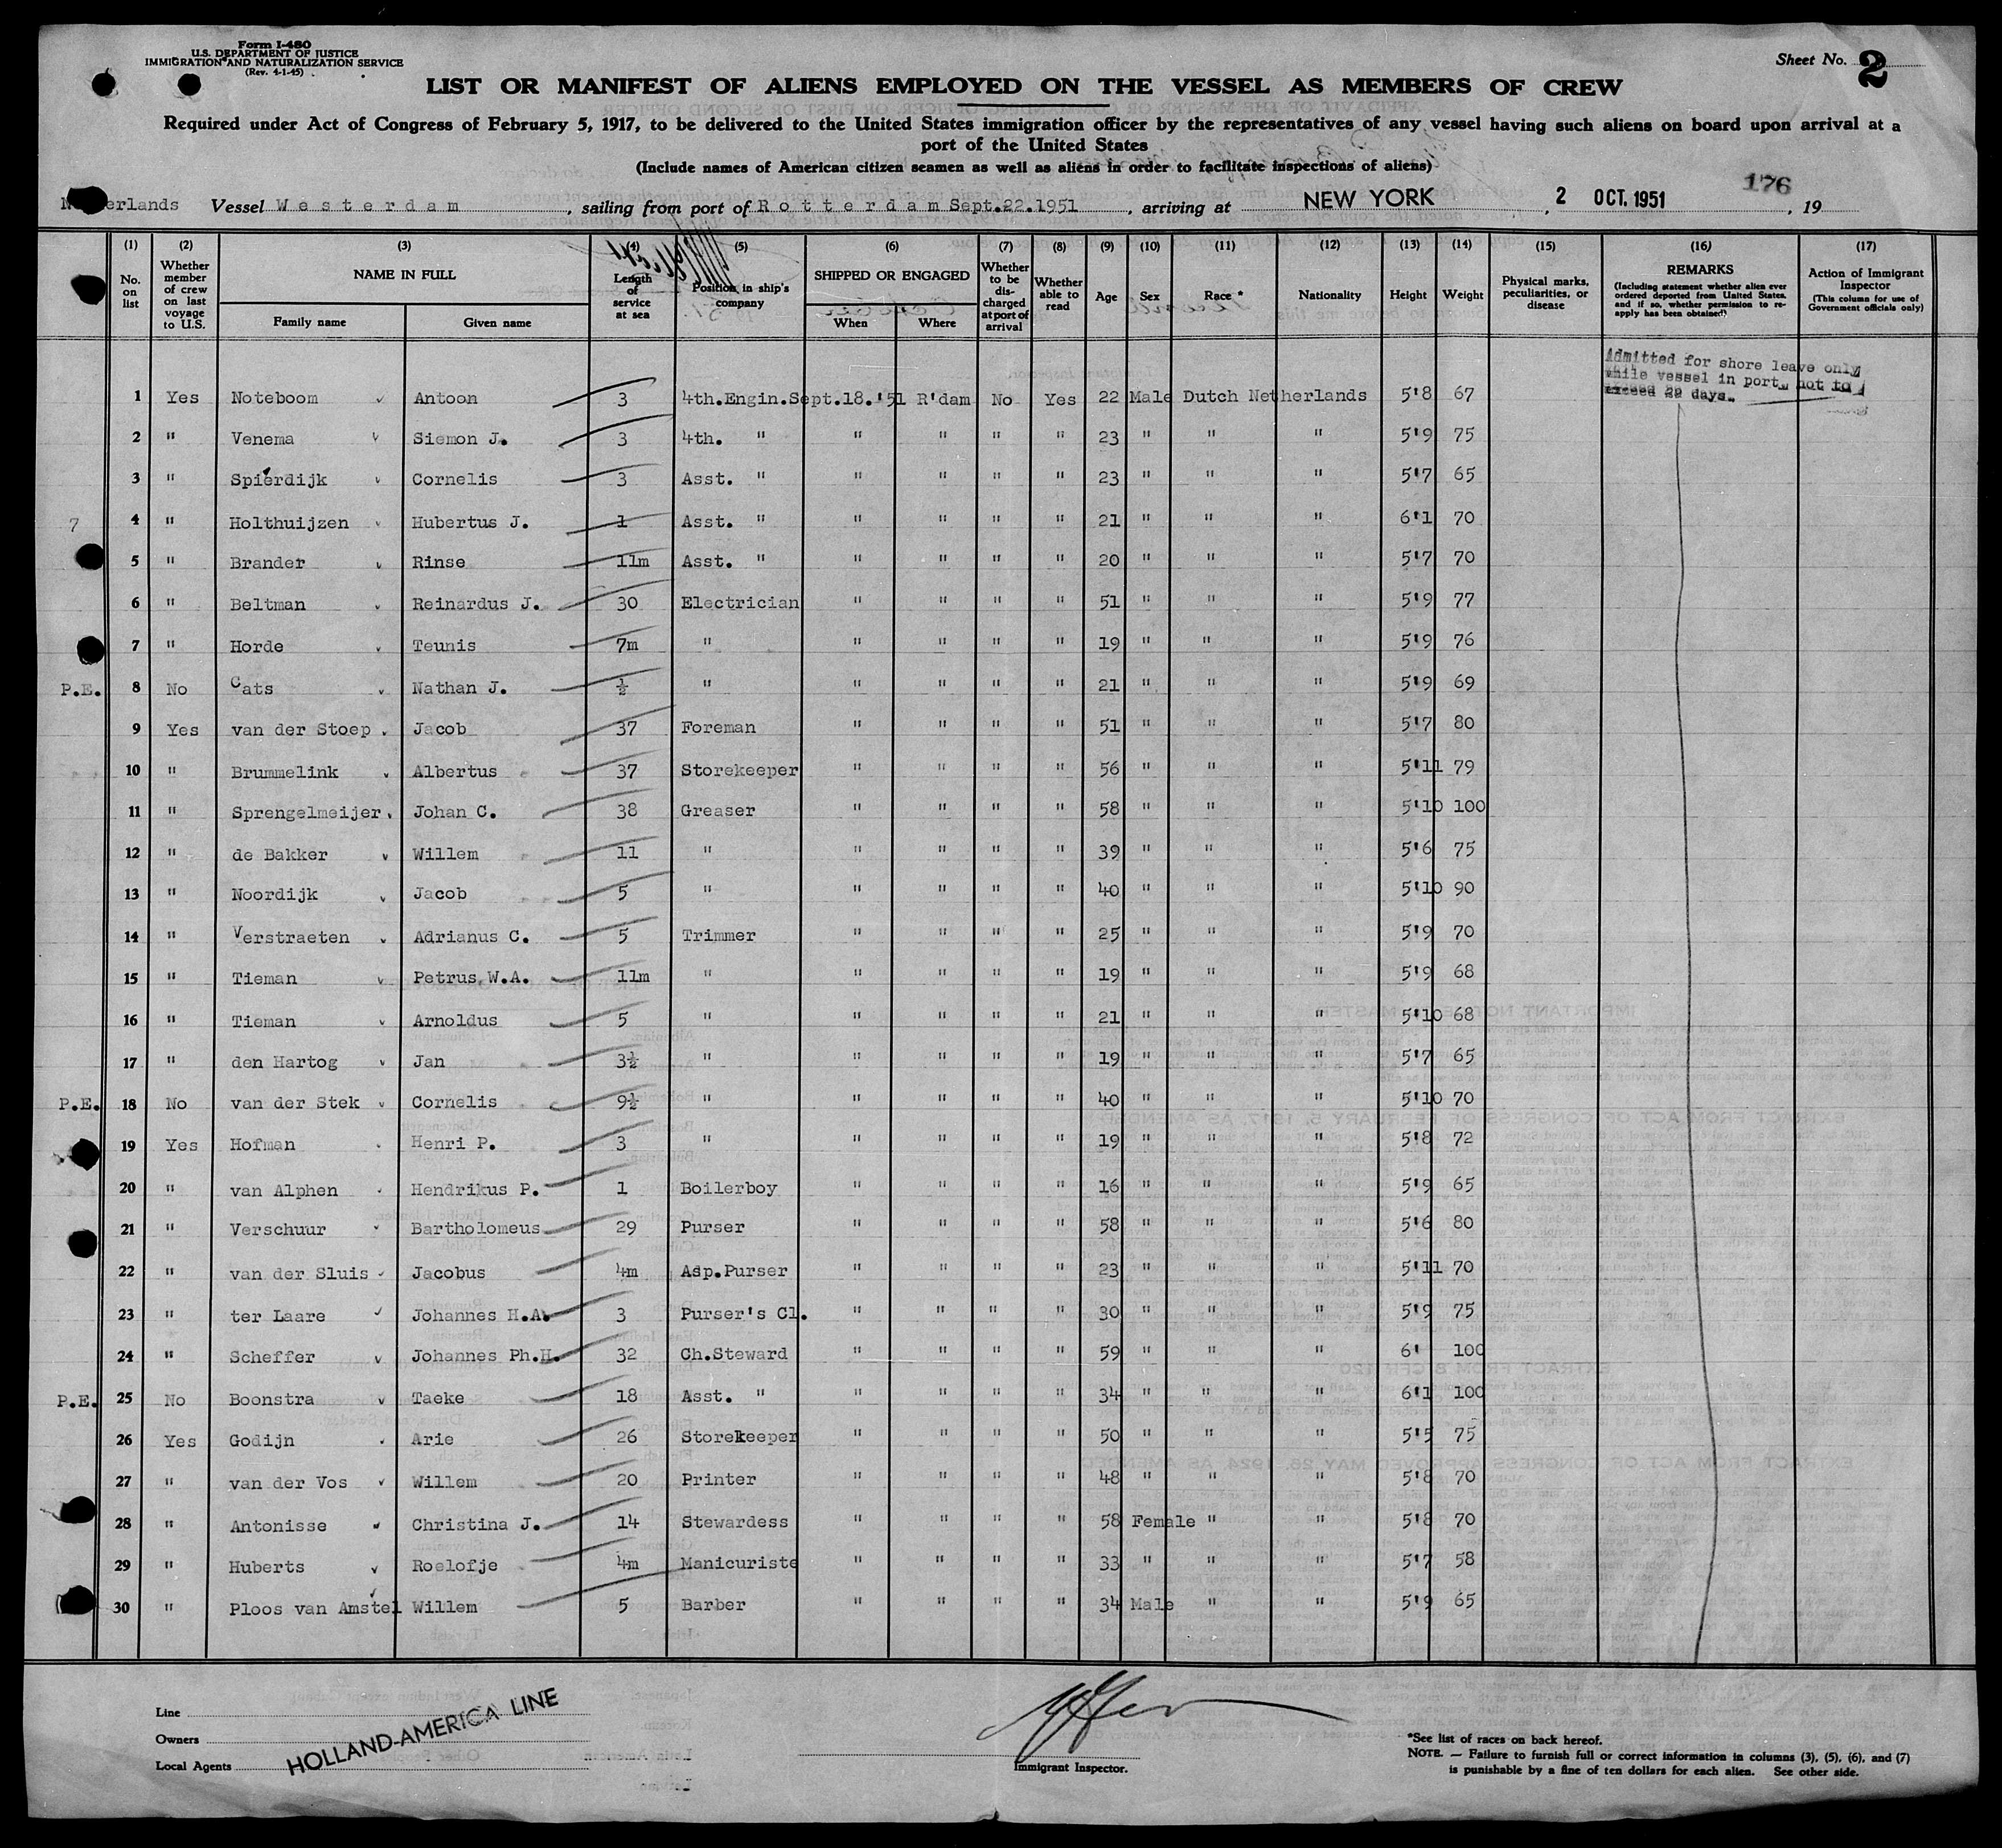 Form I-480
U.S. DEPARTMENT OF JUSTICE
IMMIGRATION AND NATURALIZATION SERVICE
(Rev. 4-1-45)
Sheet No. 2
LIST OR MANIFEST OF ALIENS EMPLOYED ON THE VESSEL AS MEMBERS OF CREW
Required under Act of Congress of February 5, 1917, to be delivered to the United States immigration officer by the representatives of any vessel having such aliens on board upon arrival at a
port of the United States
(Include names of American citizen seamen as well as aliens in order to facilitate inspections of aliens)
176
Netherlands Vessel Westerdam, sailing from port of Rotterdam Sept.22.1951, arriving at NEW YORK, 2 OCT. 1951, 19
(1) (2) (3) (4) (5) (6) (7) (8) (9) (10) (11) (12) (13) (14) (15) (16) (17)
No. on list
Whether member of crew on last voyage to U.S.
NAME IN FULL
Family name Given name
Length of service at sea
Position in ship's company
SHIPPED OR ENGAGED
When Where
Whether to be discharged at port of arrival
Whether able to read
Age Sex Race * Nationality Height Weight
Physical marks, peculiarities, or disease
REMARKS
(Including statement whether alien ever ordered deported from United States, and if so, whether permission to reapply has been obtained)
Action of Immigrant Inspector
(This column for use of Government officials only)
Admitted for shore leave only
while vessel in port, not to
exceed 29 days.
1 Yes Noteboom Antoon 3 4th.Engin. Sept.18.'51 R'dam No Yes 22 Male Dutch Netherlands 5'8 67
2 " Venema Siemon J. 3 4th. " " " " " 23 " " " 5'9 75
3 " Spierdijk Cornelis 3 Asst. " " " " " 23 " " " 5'7 65
7 4 " Holthuijzen Hubertus J. 1 Asst. " " " " " 21 " " " 6'1 70
5 " Brander Rinse 11m Asst. " " " " " 20 " " " 5'7 70
6 " Beltman Reinardus J. 30 Electrician " " " " 51 " " " 5'9 77
7 " Horde Teunis 7m " " " " " 19 " " " 5'9 76
P.E. 8 No Cats Nathan J. ½ " " " " " 21 " " " 5'9 69
9 Yes van der Stoep Jacob 37 Foreman " " " " 51 " " " 5'7 80
10 " Brummelink Albertus 37 Storekeeper " " " " 56 " " " 5'11 79
11 " Sprengelmeijer Johan C. 38 Greaser " " " " 58 " " " 5'10 100
12 " de Bakker Willem 11 " " " " " 39 " " " 5'6 75
13 " Noordijk Jacob 5 " " " " " 40 " " " 5'10 90
14 " Verstraeten Adrianus C. 5 Trimmer " " " " 25 " " " 5'9 70
15 " Tieman Petrus W.A. 11m " " " " " 19 " " " 5'9 68
16 " Tieman Arnoldus 5 " " " " " 21 " " " 5'10 68
17 " den Hartog Jan 3½ " " " " " 19 " " " 5'7 65
P.E. 18 No van der Stek Cornelis 9½ " " " " " 40 " " " 5'10 70
19 Yes Hofman Henri P. 3 " " " " " 19 " " " 5'8 72
20 " van Alphen Hendrikus P. 1 Boilerboy " " " " 16 " " " 5'9 65
21 " Verschuur Bartholomeus 29 Purser " " " " 58 " " " 5'6 80
22 " van der Sluis Jacobus 4m Asp.Purser " " " " 23 " " " 5'11 70
23 " ter Laare Johannes H.A. 3 Purser's Cl. " " " " 30 " " " 5'9 75
24 " Scheffer Johannes Ph.H. 32 Ch.Steward " " " " 59 " " " 6' 100
P.E. 25 No Boonstra Taeke 18 Asst. " " " " " 34 " " " 6'1 100
26 Yes Godijn Arie 26 Storekeeper " " " " 50 " " " 5'5 75
27 " van der Vos Willem 20 Printer " " " " 48 " " " 5'8 70
28 " Antonisse Christina J. 14 Stewardess " " " " 58 Female " " 5'8 70
29 " Huberts Roelofje 4m Manicuriste " " " " 33 " " " 5'7 58
30 " Ploos van Amstel Willem 5 Barber " " " " 34 Male " " 5'9 65
Line
Owners
Local Agents
HOLLAND-AMERICA LINE
Immigrant Inspector.
*See list of races on back hereof.
NOTE. — Failure to furnish full or correct information in columns (3), (5), (6), and (7)
is punishable by a fine of ten dollars for each alien. See other side.